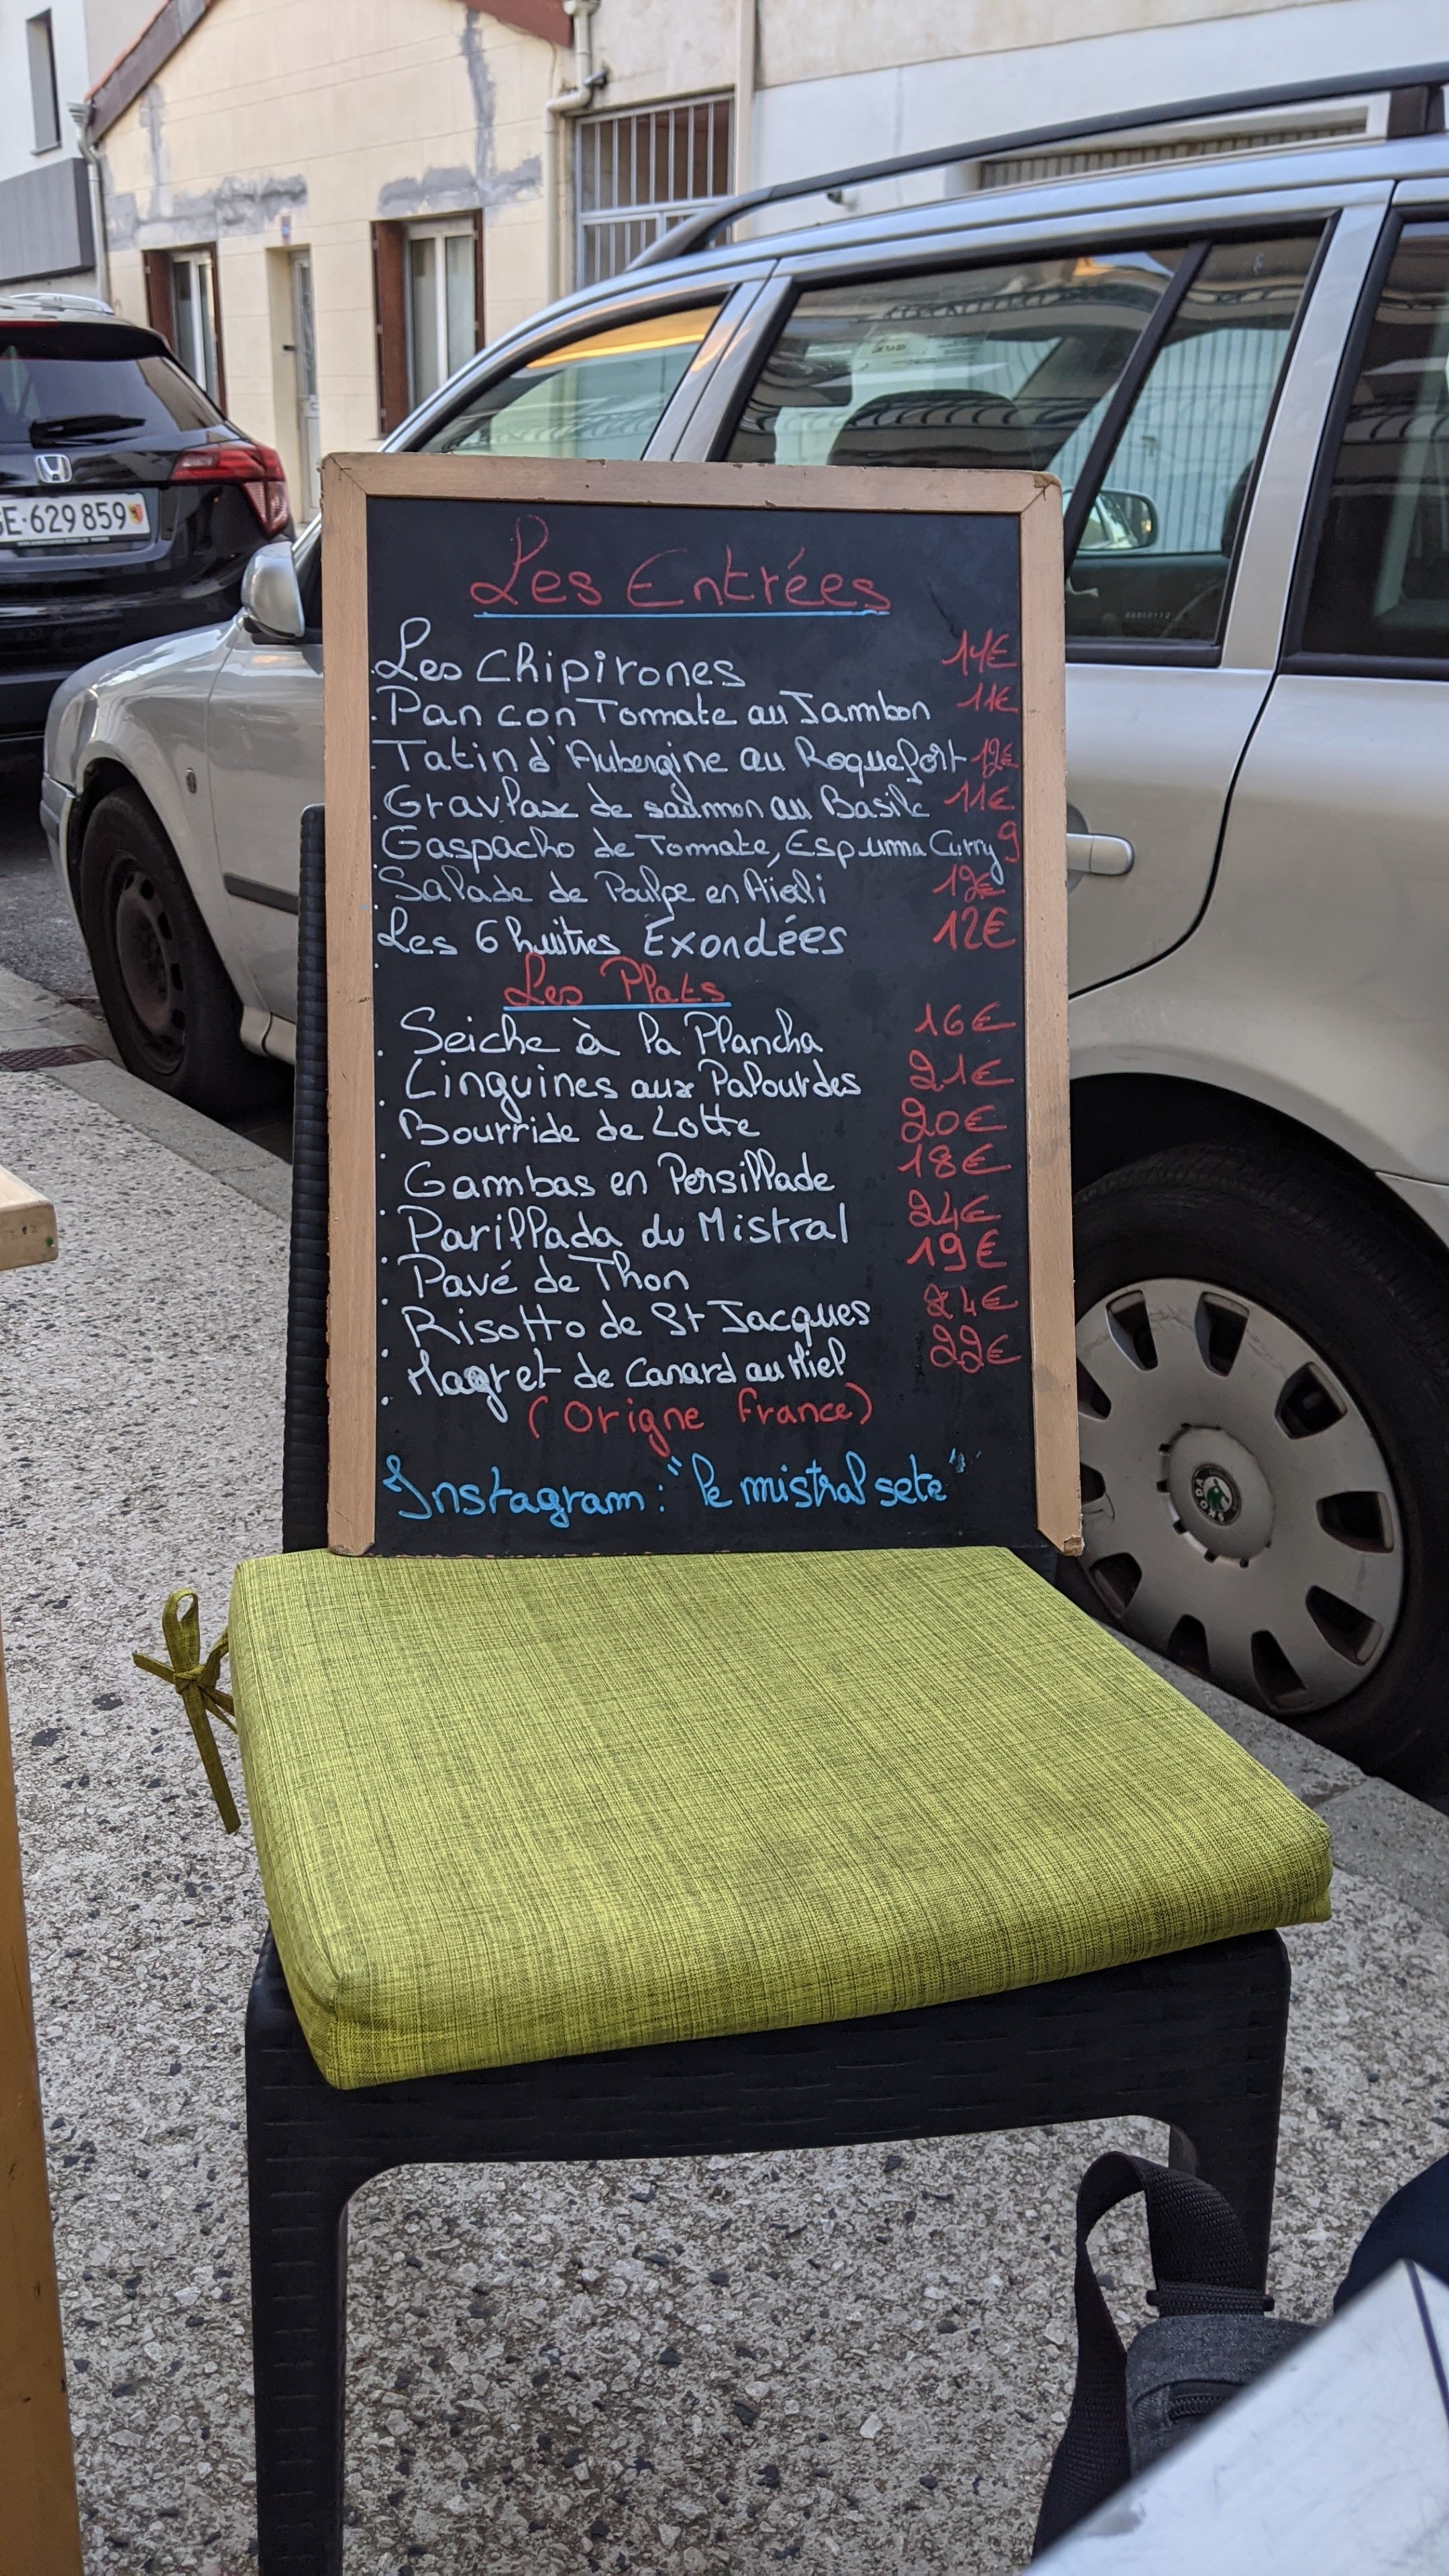 GE·629859
Les Entrées
.Les Chipirones 14€
.Pan con Tomate au Jambon 11€
.Tatin d'Aubergine au Roquefort 12€
.Gravlax de saumon au Basilc 11€
.Gaspacho de Tomate, Espuma Curry 9
.Salade de Poulpe en Aïoli 12€
.Les 6 huitres Exondées 12€
Les Plats
.Seiche à la Plancha 16€
.Linguines aux Palourdes 21€
.Bourride de Lotte 20€
.Gambas en Persillade 18€
.Parillada du Mistral 24€
.Pavé de Thon 19€
.Risotto de St Jacques 24€
.Magret de Canard au Miel 22€
(Origne France)
Instagram : "le mistral sete"
SKODA